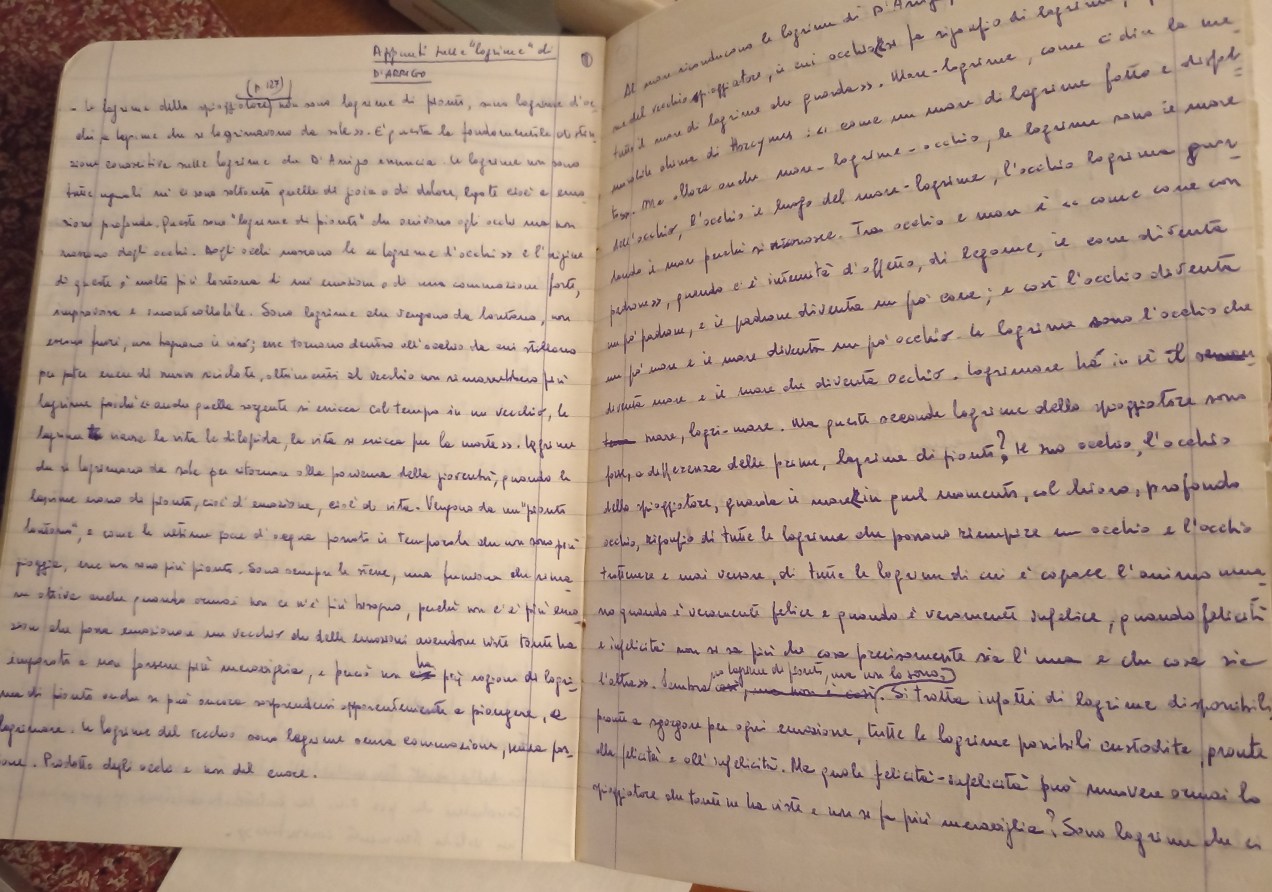 Appunti sulle "lagrime" di
D'ARRIGO
1
(p. 127)
- Le lagrime dello spiaggiatore, non sono lagrime di pianto, sono lagrime d'oc
chi, « lagrime che si lagrimavano da sole». È questa la fondamentale distin
zione conoscitiva sulle lagrime che D'Arrigo enuncia. Le lagrime non sono
tutte uguali né ci sono soltanto quelle di gioia o di dolore, legate cioè a emo
zione profonda. Queste sono "lagrime di pianto" che arrivano agli occhi ma non
nascono dagli occhi. Dagli occhi nascono le « lagrime d'occhi» e l'origine
di queste è molto più lontana di un'emozione o di una commozione forte,
improvvisa e incontrollabile. Sono lagrime che vengono da lontano, non
escono fuori, non bagnano il viso; esse tornano dentro all'occhio da cui stillano
per poter essere di nuovo riciclate, altrimenti al vecchio non rimarrebbero più
lagrime poiché « anche quella sorgente si secca col tempo in un vecchio, le
lagrime la vita le dilapida, la vita si secca per la morte». Lagrime
che si lagrimano da sole per ritornare alla della gioventù, quando le
lagrime erano di pianto, cioè d'emozione, cioè di vita. Vengono da un "pianto
lontano", e come le ultime gocce d'acqua passato il temporale che non sono più
pioggia, esse non sono più pianto. Sono sempre le stesse, una funzione che rima
ne attiva anche quando ormai non ce n'è più bisogno, perché non c'è più emo
zione che possa emozionare un vecchio che delle emozioni avendone viste tante ha
imparato a non farsene più meraviglia, e perciò non ha più ragione di lagri
me di pianto anche se può ancora sorprendersi apparentemente a piangere, a
lagrimare. Le lagrime del vecchio sono lagrime senza commozione, senza pas
sione. Prodotto degli occhi e non del cuore.
Al mare riconducono le lagrime di D'Arrigo,
me del vecchio spiaggiatore, il cui occhio « si fa rigonfio di lagrime,
tutto il mare di lagrime che guarda». Mare-lagrime, come ci dice la me
morabile chiusa di Horcynus: « come un mare di lagrime fatto e disfat
to». Ma allora anche mare-lagrime-occhio, le lagrime sono il mare
dell'occhio, l'occhio il luogo del mare-lagrime, l'occhio lagrima guar
dando il mare perché si riconosce. Tra occhio e mare è « come cane con
padrone», quando c'è intensità d'affetto, di legame, il cane diventa
un po' padrone, e il padrone diventa un po' cane; e così l'occhio diventa
un po' mare e il mare diventa un po' occhio. Le lagrime sono l'occhio che
diventa mare e il mare che diventa occhio. Lagrimare ha in sé il
mare, lagri-mare. Ma queste seconde lagrime dello spiaggiatore sono
forse, a differenza delle prime, lagrime di pianto? Il suo occhio, l'occhio
dello spiaggiatore, guarda il mare « in quel momento, col chiaro, profondo
occhio, rigonfio di tutte le lagrime che possono riempire un occhio e l'occhio
trattenere e mai versare, di tutte le lagrime di cui è capace l'animo uma
no quando è veramente felice e quando è veramente infelice, quando felicità
e infelicità non si sa più che cosa precisamente sia l'una e che cosa sia
l'altra». Sembra così, ma non è così. lagrime di pianto, ma non lo sono. Si tratta infatti di lagrime disponibili,
pronte a sgorgare per ogni emozione, tutte le lagrime possibili custodite, pronte
alla felicità e all'infelicità. Ma quale felicità-infelicità può smuovere ormai lo
spiaggiatore che tante ne ha viste e non si fa più meraviglia? Sono lagrime che ci